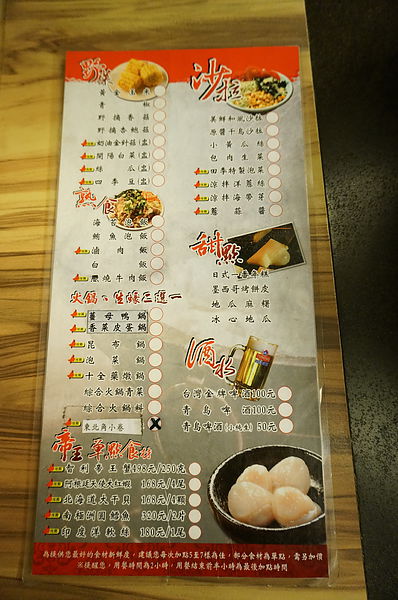 野菜
青椒
野摘香菇
野摘杏鮑菇
奶油金針菇(盅)
開陽白菜(盅)
絲瓜(盅)
四季豆(盅)
熟食
鮪魚泡飯
滷肉飯
白飯
醬燒牛肉飯
火鍋、生蠔三選一
薑母鴨鍋
香菜皮蛋鍋
昆布鍋
泡菜鍋
十全藥燉鍋
綜合火鍋青菜
綜合火鍋料
東北角小卷
沙拉
美鮮和風沙拉
原醬千島沙拉
小黃瓜絲
包肉生菜
田季特製泡菜
涼拌洋蔥絲
涼拌海帶芽
蔥蒜醬
甜點
日式一番年糕
墨西哥烤餅皮
地瓜麻糬
冰心地瓜
酒水
台灣金牌啤酒100元
青島啤酒100元
青島啤酒(小瓶生) 50元
帝王 單點食材
智利帝王蟹498元/250克
阿根廷天使大紅蝦 168元/4尾
北海道大干貝 168元/4顆
南極洲圓鱈魚 328元/2片
印度洋軟絲 180元/1尾
為提供您最好的食材新鮮度，建議您每次加點5至7樣為佳，部分食材為單點，需另加價
※提醒您，用餐時間為2小時，用餐結束前半小時為最後加點時間